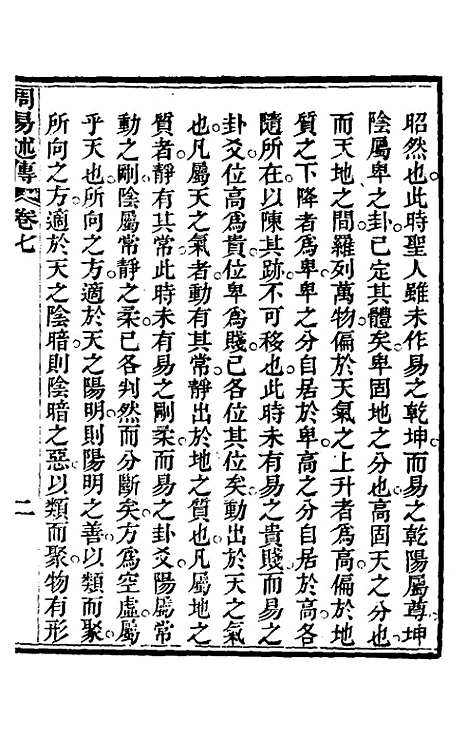 昭然也此時聖人雖未作易之乾坤而易之乾陽屬尊坤
陰屬卑之卦已定其體矣卑固地之分也高固天之分也
而天地之間羅列萬物偏於天氣之上升者爲高偏於地
質之下降者爲卑卑之分自居於卑高之分自居於高各
隨所在以陳其跡不可移也此時未有易之貴賤而易之
卦爻位高爲貴位卑爲賤已各位其位矣動出於天之氣
也凡屬天之氣者動有其常靜出於地之質也凡屬地之
質者靜有其常此時未有易之剛柔而易之卦爻陽屬常
動之剛陰屬常靜之柔已各判然而分斷矣方爲空虛屬
乎天也所向之方適於天之陽明則陽明之善以類而聚
所向之方適於天之陰暗則陰暗之惡以類而聚物有形
周易述傳 卷七 二